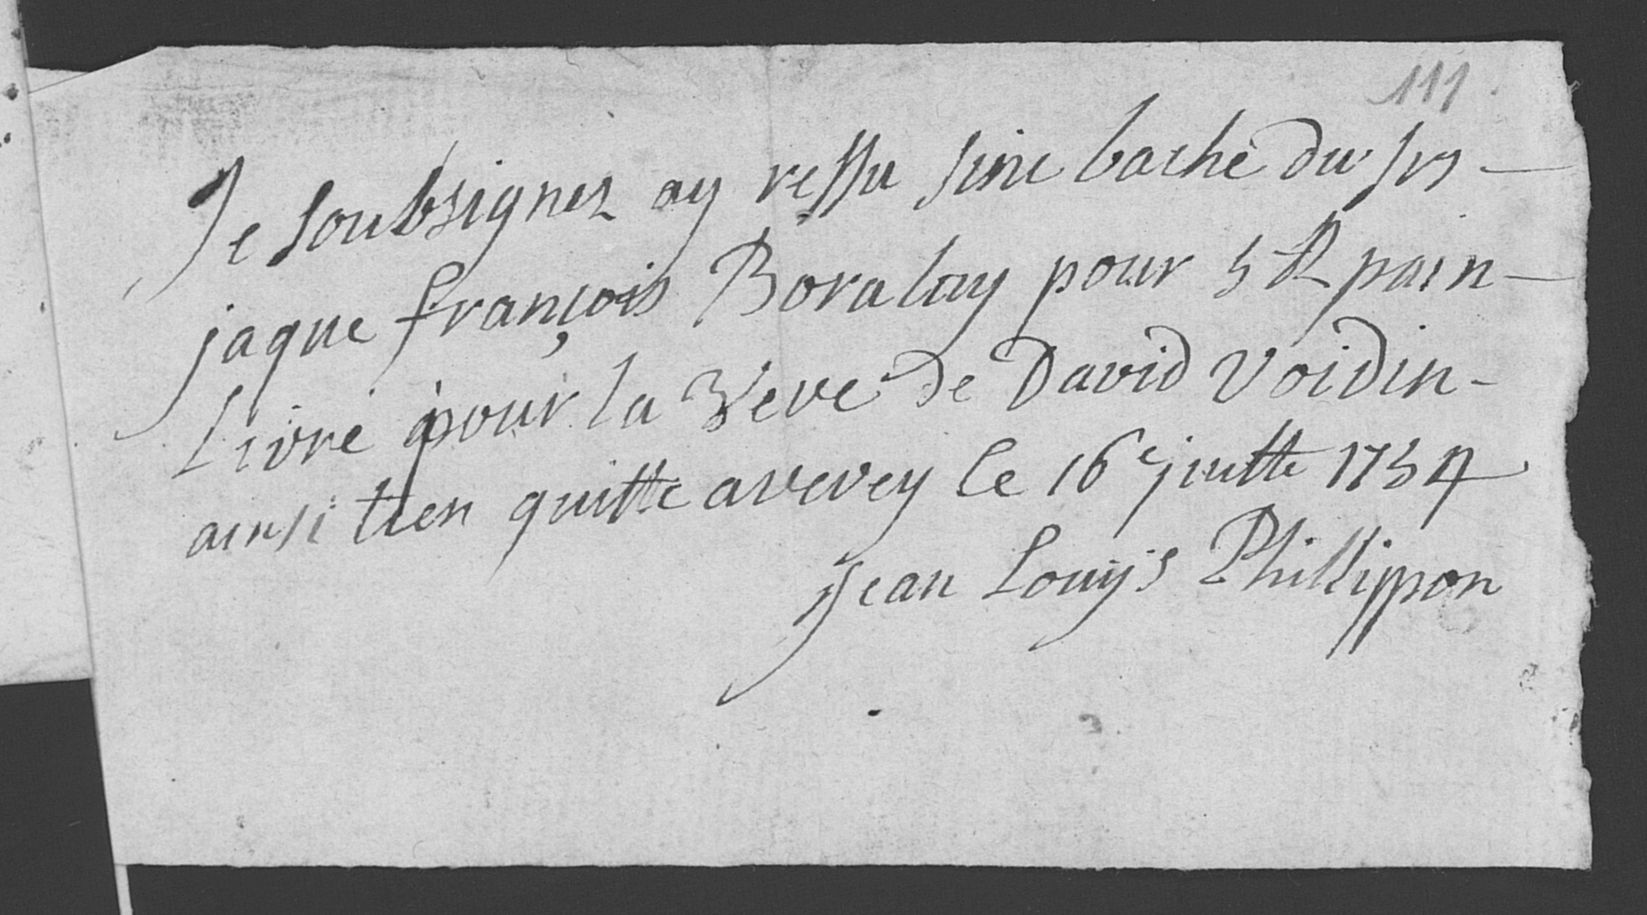 111
Je soubsignez ay ressu sinc bache du Srs
jaque françois Boralay pour 5 ℔ pain
Livré pour la veve de David Voidin
ainsi tien quitte a vevey le 16e juitte 1734
Jean Louys Phillippon